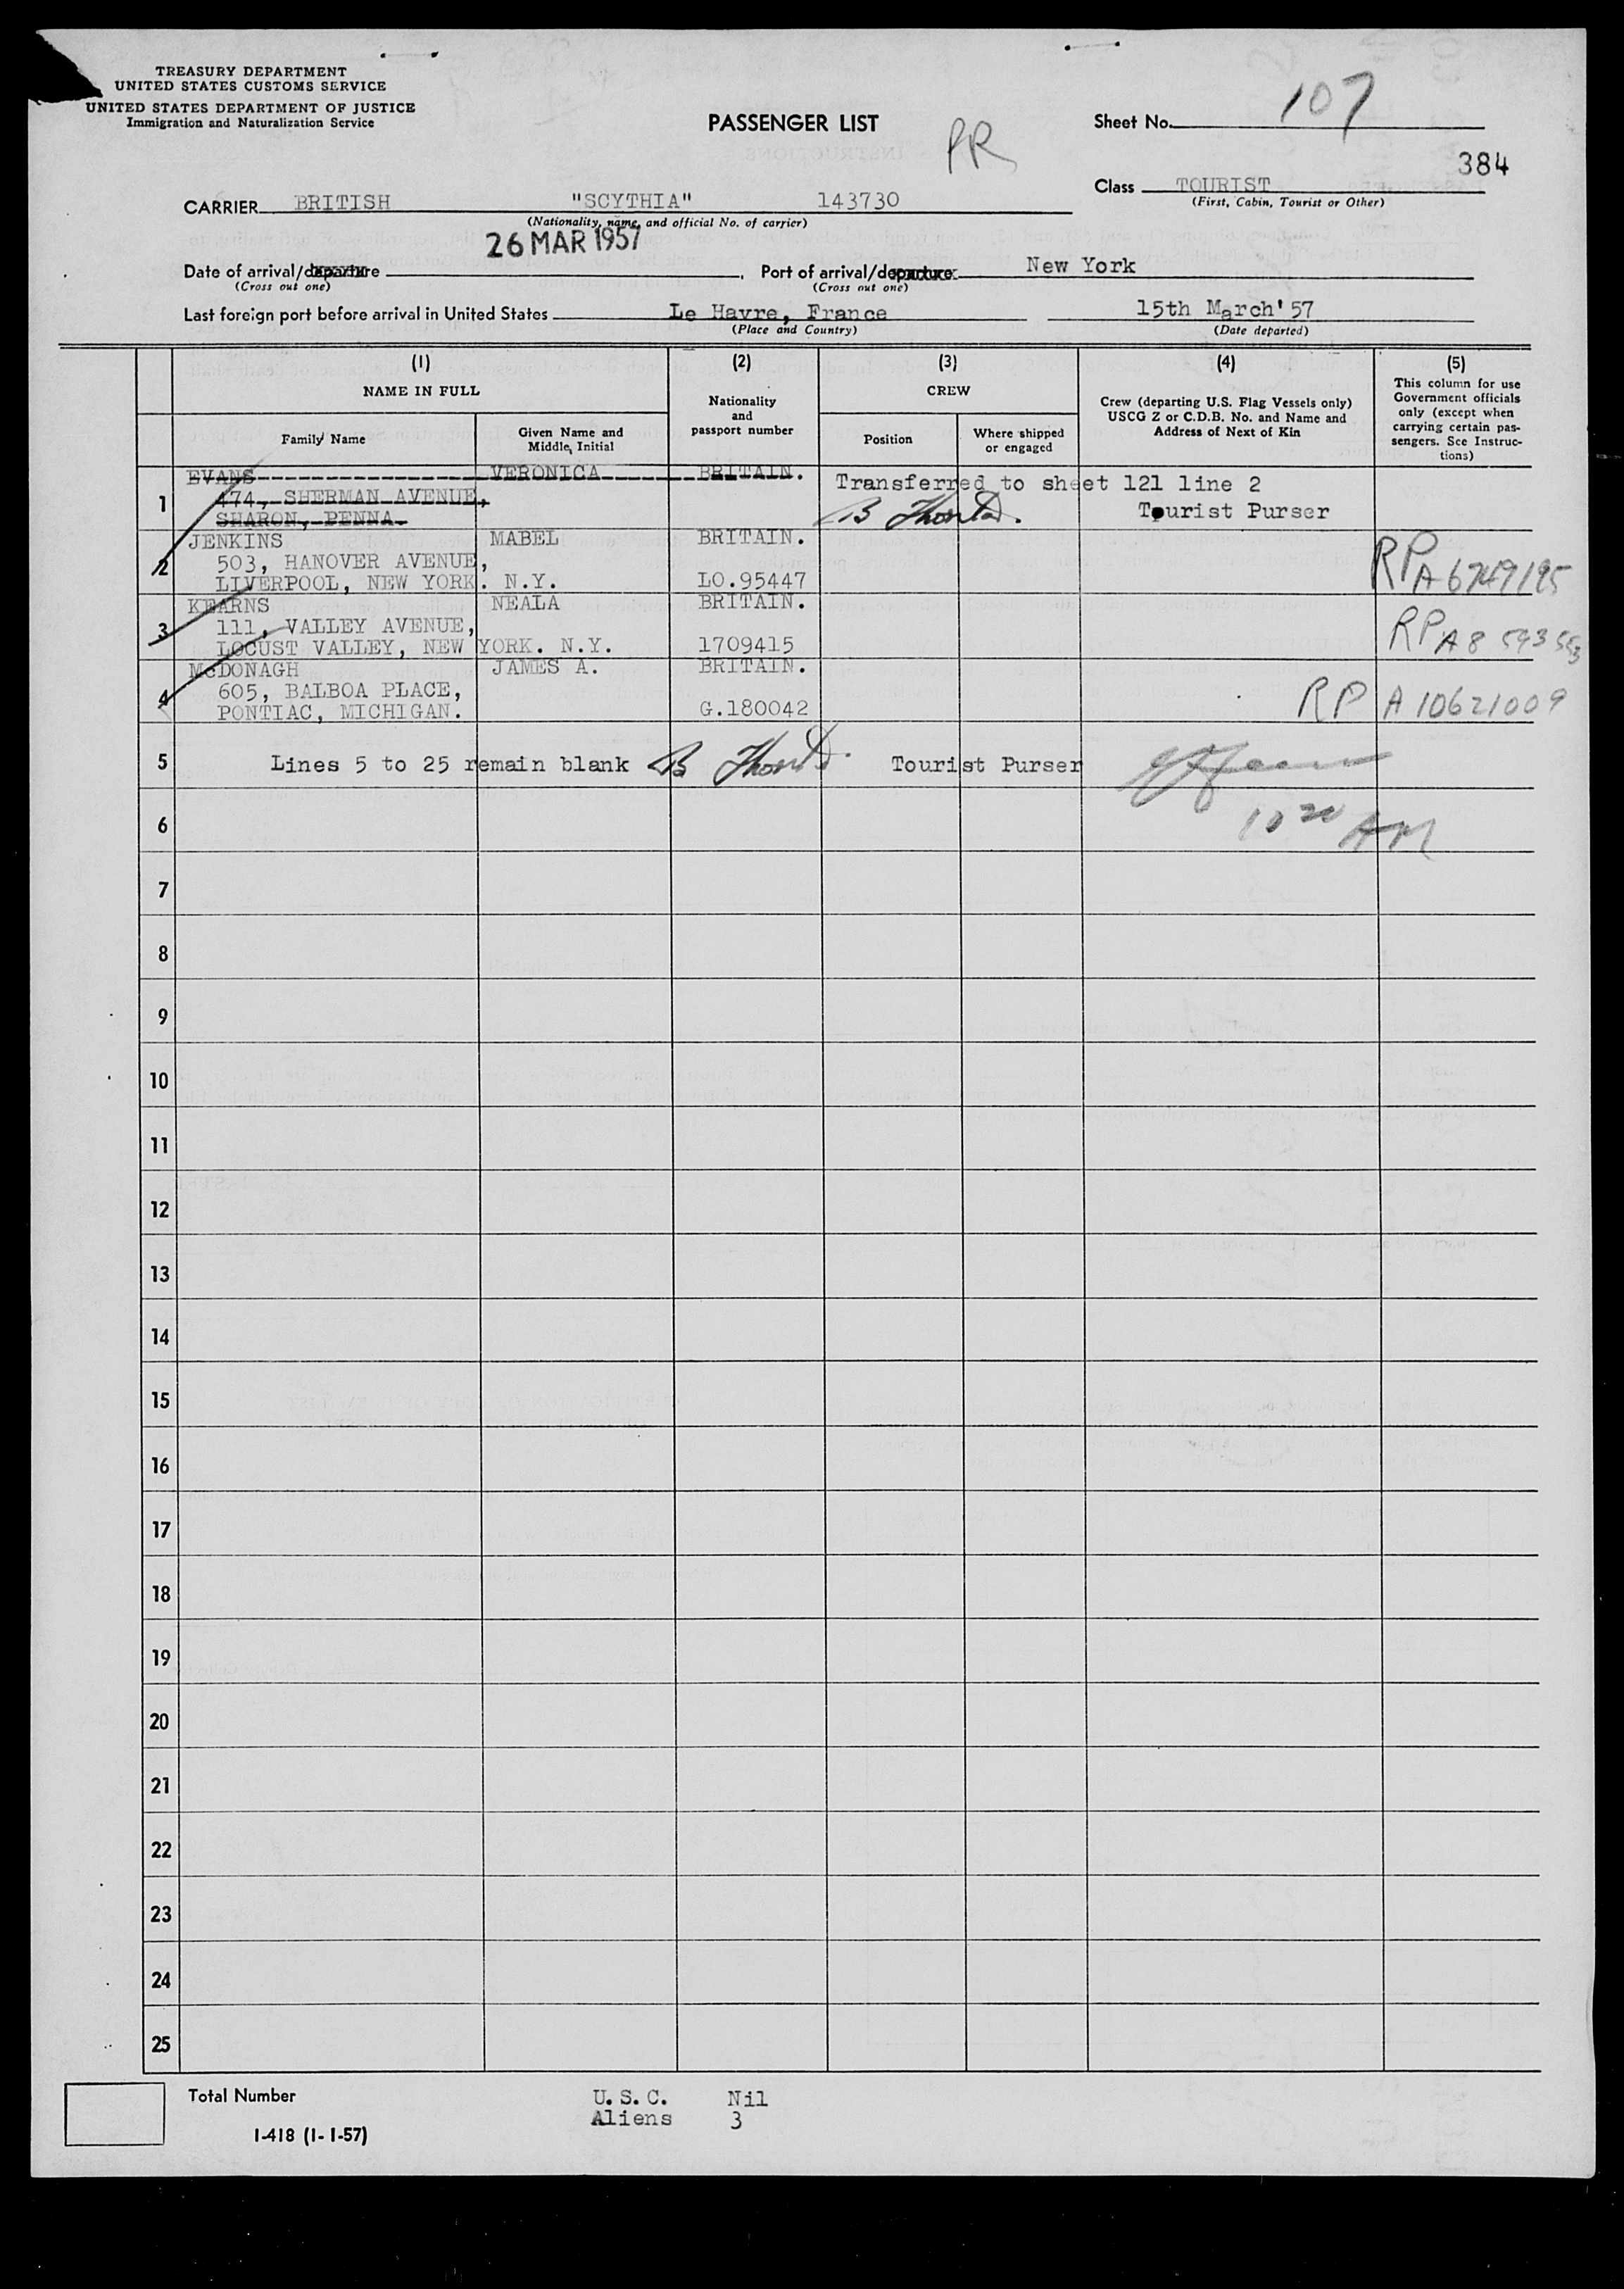 TREASURY DEPARTMENT
UNITED STATES CUSTOMS SERVICE
UNITED STATES DEPARTMENT OF JUSTICE
Immigration and Naturalization Service
PASSENGER LIST
PR
Sheet No. 107
384
Class TOURIST
(First, Cabin, Tourist or Other)
CARRIER BRITISH "SCYTHIA" 143730
(Nationality, name, and official No. of carrier)
26 MAR 1957
Date of arrival/departure
(Cross out one)
Port of arrival/departure New York
(Cross out one)
Last foreign port before arrival in United States Le Havre, France 15th March'57
(Place and Country) (Date departed)
(1) (2) (3) (4) (5)
NAME IN FULL
Family Name
Given Name and
Middle Initial
Nationality
and
passport number
CREW
Position
Where shipped
or engaged
Crew (departing U.S. Flag Vessels only)
USCG Z or C.D.B. No. and Name and
Address of Next of Kin
This column for use
Government officials
only (except when
carrying certain pas-
sengers. See Instruc-
tions)
1 EVANS VERONICA BRITAIN.
474, SHERMAN AVENUE,
SHARON, PENNA.
Transferred to sheet 121 line 2
Tourist Purser
2 JENKINS MABEL BRITAIN.
503, HANOVER AVENUE,
LIVERPOOL, NEW YORK. N.Y. LO.95447
RP A 6749195
3 KEARNS NEALA BRITAIN.
111, VALLEY AVENUE,
LOCUST VALLEY, NEW YORK. N.Y. 1709415
RP A8 593 553
4 McDONAGH JAMES A. BRITAIN.
605, BALBOA PLACE,
PONTIAC, MICHIGAN. G.180042
RP A 10621009
5 Lines 5 to 25 remain blank Tourist Purser
10 20 AM
6
7
8
9
10
11
12
13
14
15
16
17
18
19
20
21
22
23
24
25
Total Number U.S.C. Nil
Aliens 3
I-418 (1-1-57)